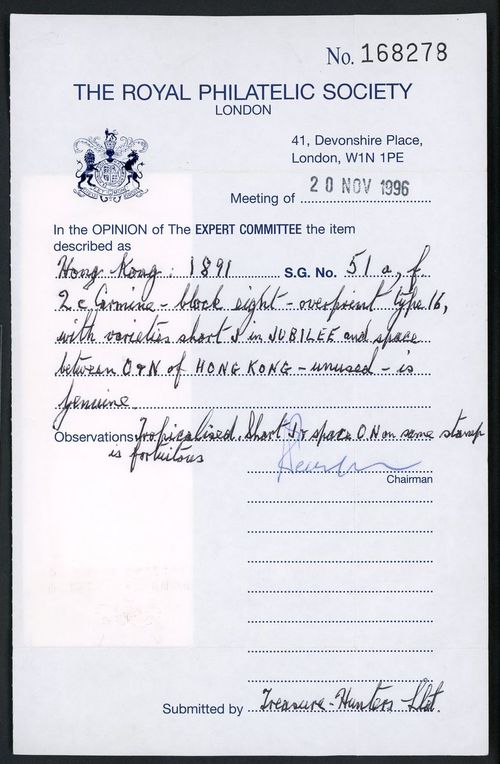 No. 168278
THE ROYAL PHILATELIC SOCIETY
LONDON
41, Devonshire Place,
London, W1N 1PE
Meeting of 20 NOV 1996
In the OPINION of The EXPERT COMMITTEE the item
described as
Hong Kong: 1891 S.G. No. 51 a, f
2c Carmine - block eight - overprint type 16,
with varieties short J in JUBILEE and space
between O & N of HONG KONG - unused - is
genuine
Observations Tropicalised. Short J & space O N on same stamp
is fortuitous
Chairman
Submitted by Treasure-Hunters Ltd.